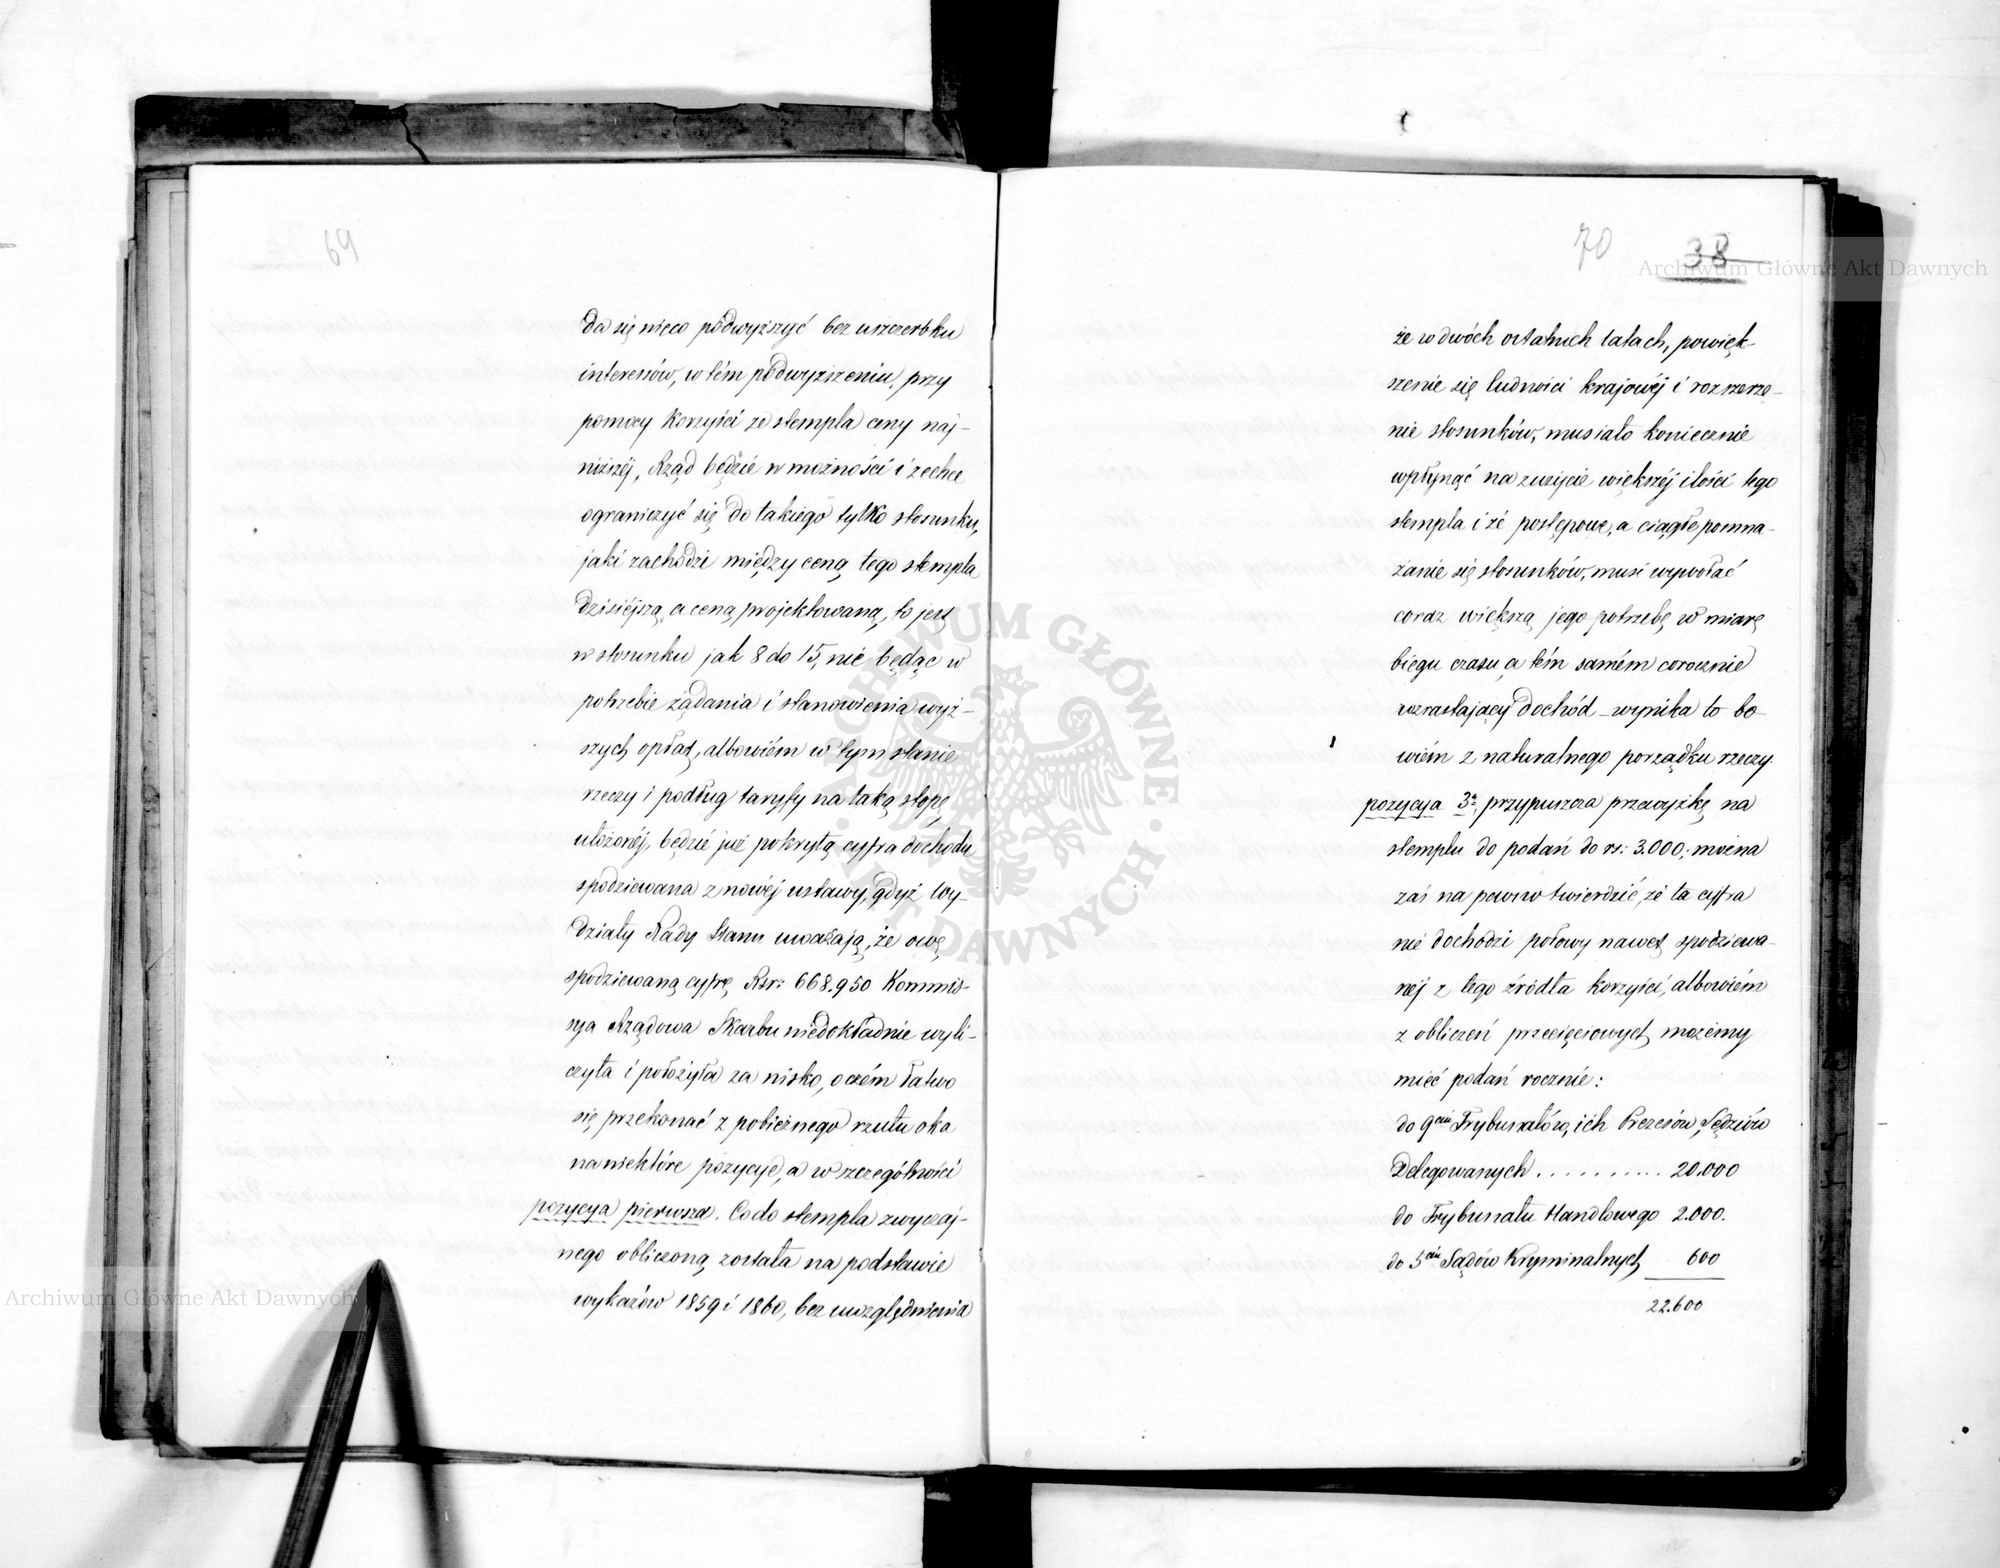 69
da się nieco podwyższyć bez uszczerbku
interesów, w tém podwyższeniu, przy
pomocy korzyści ze stempla ceny naj-
niższéj, Rząd będzie w możności i zechce
ograniczyć się do takiego tylko stosunku,
jaki zachodzi między ceną tego stempla
dzisiéjszą, a ceną projektowaną, to jest
w stosunku jak 8 do 15, nie będąc w
potrzebie żądania i stanowienia wyż-
szych opłat, albowiém w tym stanie
rzeczy i podług taryfy na taką stopę
ułożonéj, będzie już pokrytą cyfra dochodu
spodziewana z nowéj ustawy, gdyż Wy-
działy Rady Stanu uważają, że owę
spodziewaną cyfrę Rsr: 668.950 Kommis-
sya Rządowa Skarbu niedokładnie wyli-
czyła i położyła za nisko, o czém łatwo
się przekonać z pobieżnego rzutu oka
na niektóre pozycye, a w szczególności
pozycya pierwsza. Co do stempla zwyczaj-
nego obliczoną została na podstawie
wykazów 1859 i 1860, bez uwzględnienia
70 38
że w dwóch ostatnich latach, powięk-
szenie się ludności krajowéj i rozszerze-
nie stosunków, musiało koniecznie
wpłynąć na zużycie większéj ilości tego
stempla i że postępowe, a ciągłe pomna-
żanie się stosunków, musi wywołać
coraz większą jego potrzebę w miarę
biegu czasu, a tém samém corocznie
wzrastający dochód – wynika to bo-
wiém z naturalnego porządku rzeczy.
pozycya 3a, przypuszcza przewyżkę na
stemplu do podań do rs: 3.000; można
zaś na pewno twierdzić, że ta cyfra
nie dochodzi połowy nawet spodziewa-
néj z tego źródła korzyści, albowiém
z obliczeń przecięciowych możemy
mieć podań rocznie:
do 9ciu Trybunałów, ich Prezesów, Sędziów
Delegowanych . . . . . . . . . . 20.000
do Trybunału Handlowego 2.000.
do 5ciu Sądów Kryminalnych 600
22.600
Archiwum Główne Akt Dawnych
Archiwum Główne Akt Dawnych
ARCHIWUM GŁÓWNE · AKT DAWNYCH ·